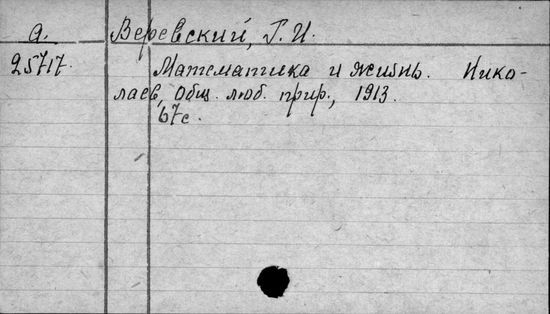 а. Веревский, Г. И.
25717. Математика и жизнь. Нико-
лаев, Общ. люб. прир., 1913.
67с.